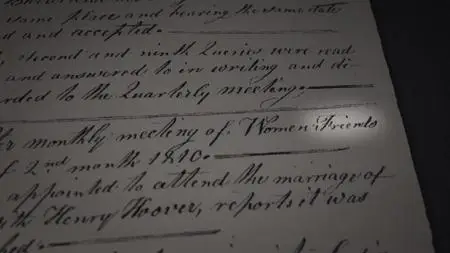 same place and bearing the same date
d and accepted.
second and ninth Queries were read
and answered to in writing and di-
rded to the Quarterly meeting.
monthly meeting of Women Friends
f 2nd month 1810.
appointed to attend the marriage of
th Henry Hoover, reports it was
hed.